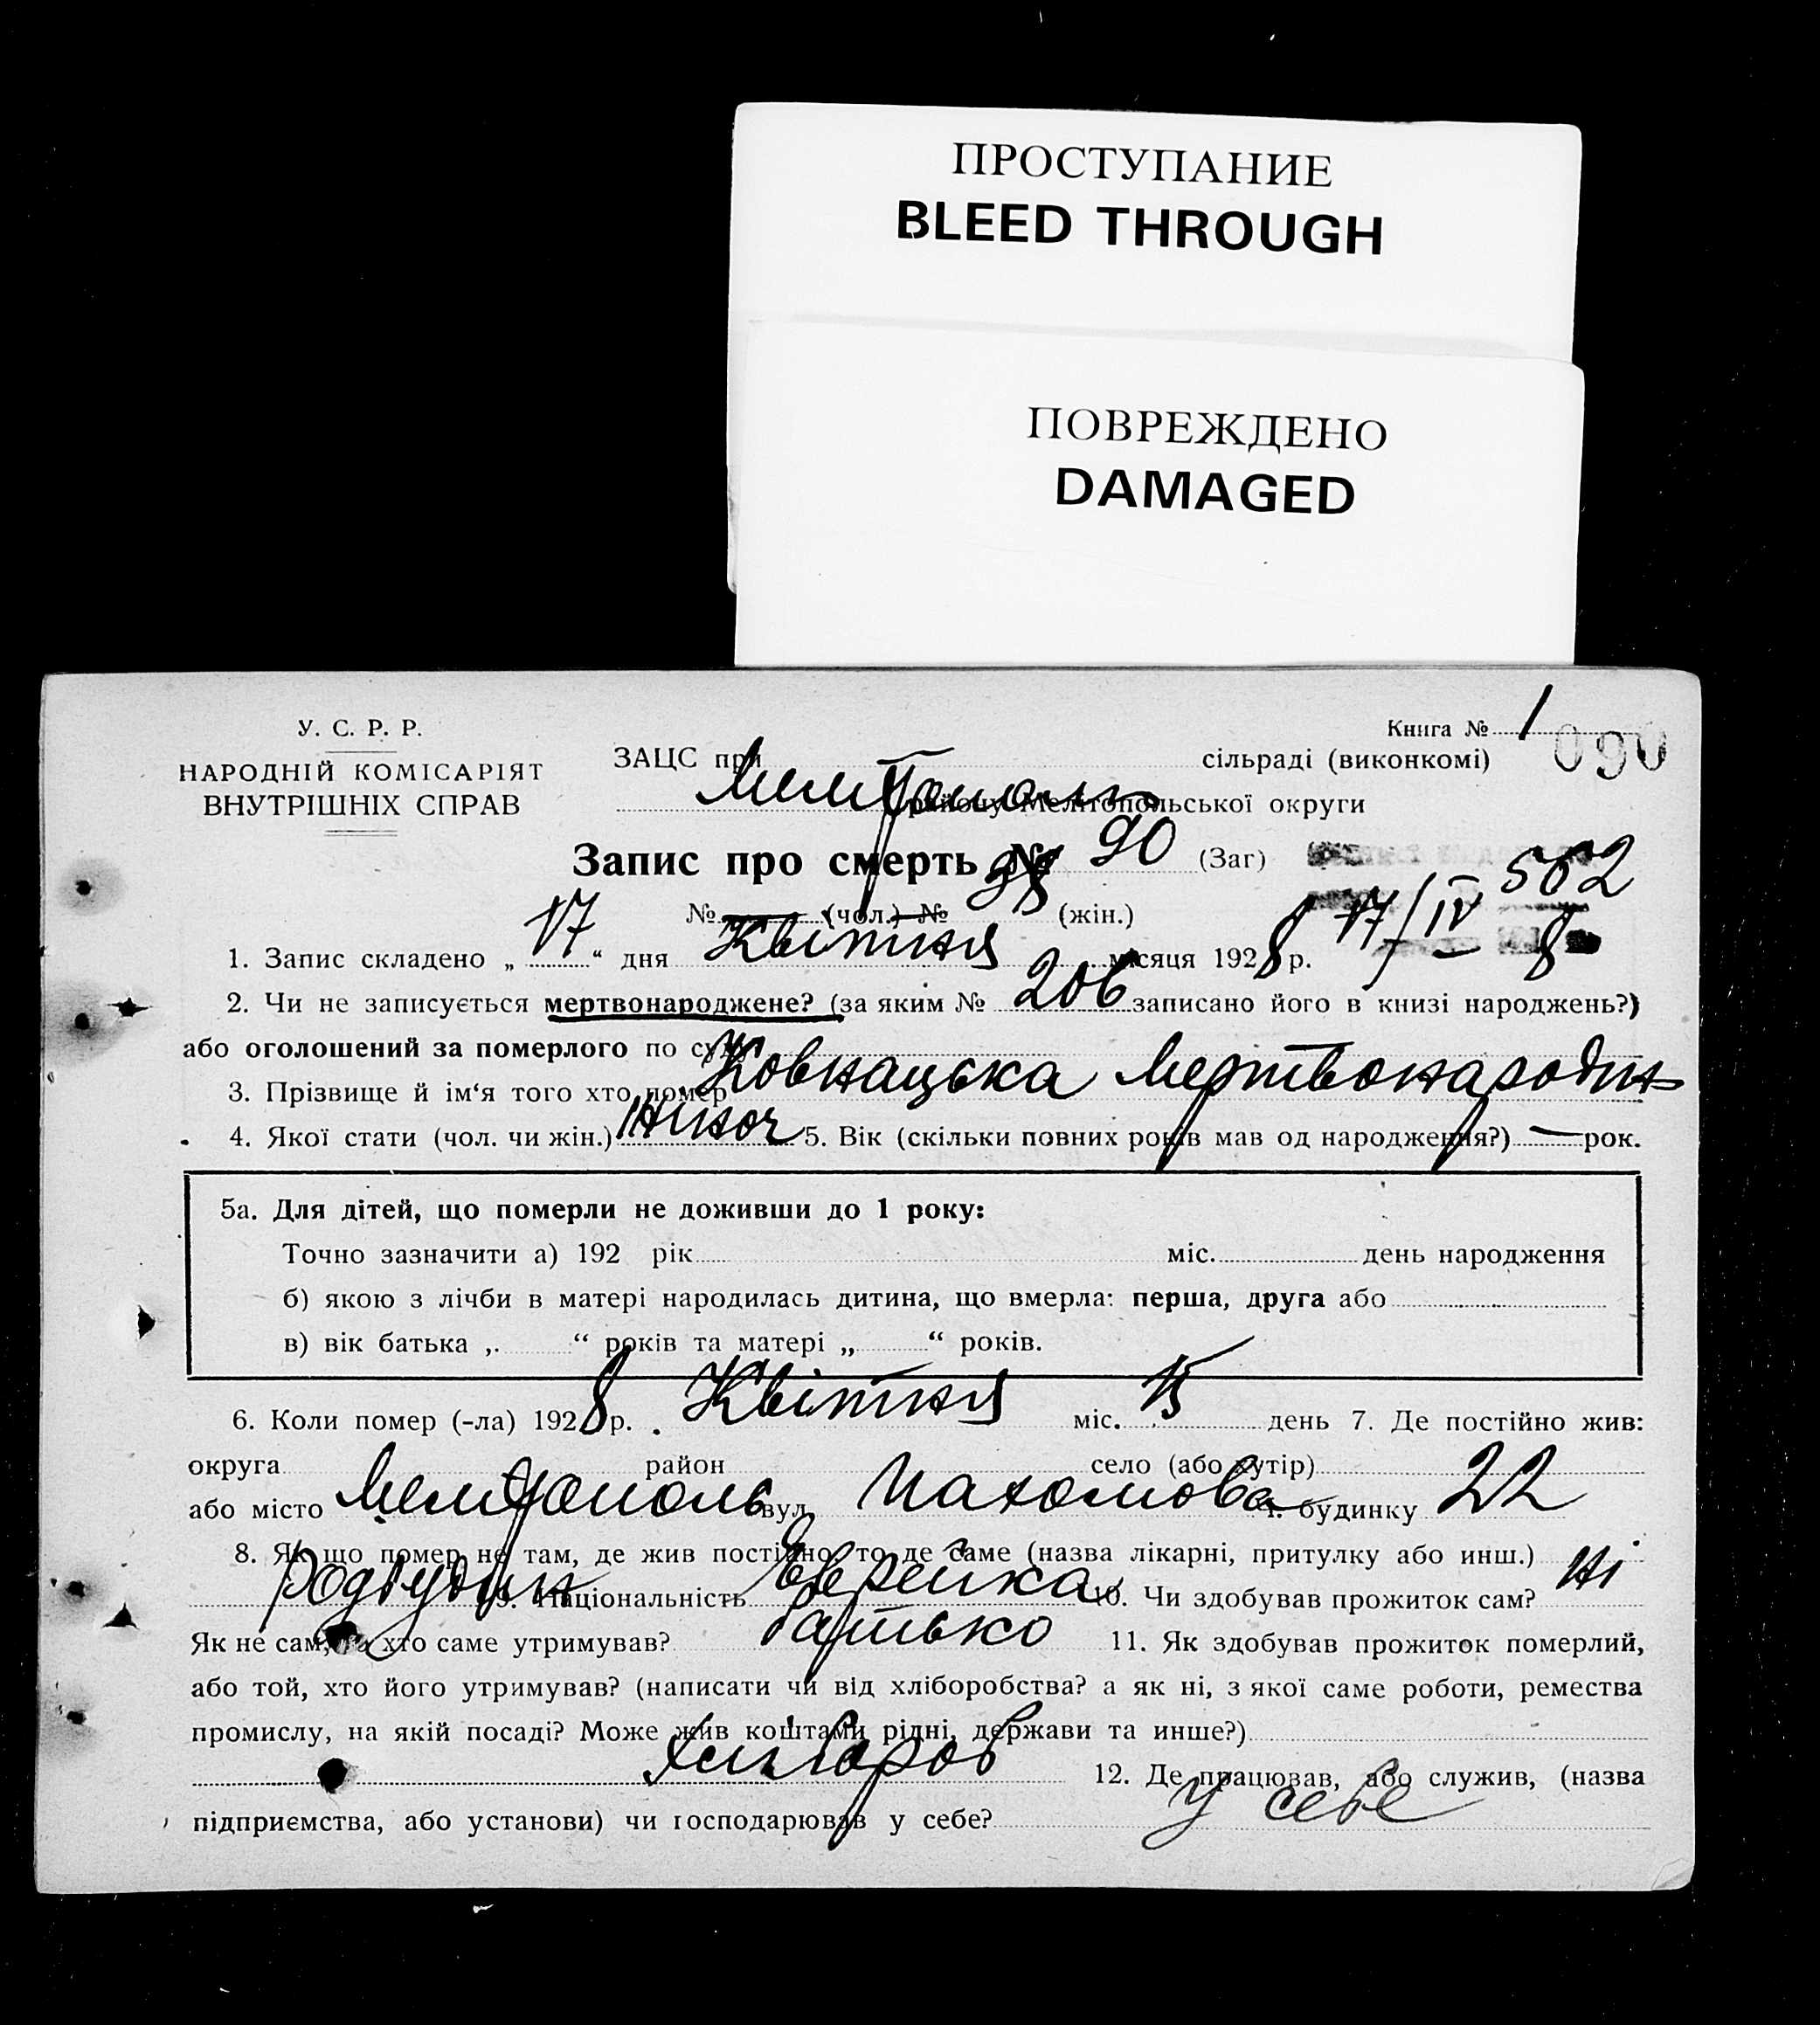 ПРОСТУПАНИЕ
BLEED THROUGH
ПОВРЕЖДЕНО
DAMAGED
У. С. Р. Р.
НАРОДНІЙ КОМІСАРІЯТ
ВНУТРІШНІХ СПРАВ
Книга № 1
090
ЗАЦС при сільраді (виконкомі)
Мелітополь району Мелітопольської округи
Запис про смерть № 90 (Заг)
562
№ (чол.) № 38 (жін.)
17/IV 8
1. Запис складено „ 17 “ дня Квітня місяця 1928 р.
2. Чи не записується мертвонароджене? (за яким № 206 записано його в книзі народжень?)
або оголошений за померлого по суду
3. Прізвище й ім‘я того хто помер Ковнацька Мертвонародж
4. Якої стати (чол. чи жін.) Жіноч 5. Вік (скільки повних років мав од народження?) — рок.
5а. Для дітей, що померли не доживши до 1 року:
Точно зазначити а) 192 рік міс. день народження
б) якою з лічби в матері народилась дитина, що вмерла: перша, друга або
в) вік батька ,. “ років та матері „ “ років.
6. Коли помер (-ла) 1928 р. Квітня міс. 15 день 7. Де постійно жив:
округа район село (або хутір)
або місто Мелітополь вул. Пахомова ч. будинку 22
8. Як що помер не там, де жив постійно, то де саме (назва лікарні, притулку або инш.)
Родбудин 9. Національність Єврейка 10. Чи здобував прожиток сам? Ні
Як не сам, то хто саме утримував? батько 11. Як здобував прожиток померлий,
або той, хто його утримував? (написати чи від хліборобства? а як ні, з якої саме роботи, ремества
промислу, на якій посаді? Може жив коштами рідні, держави та инше?)
12. Де працював, або служив, (назва
підприємства, або установи) чи господарював у себе? у себе